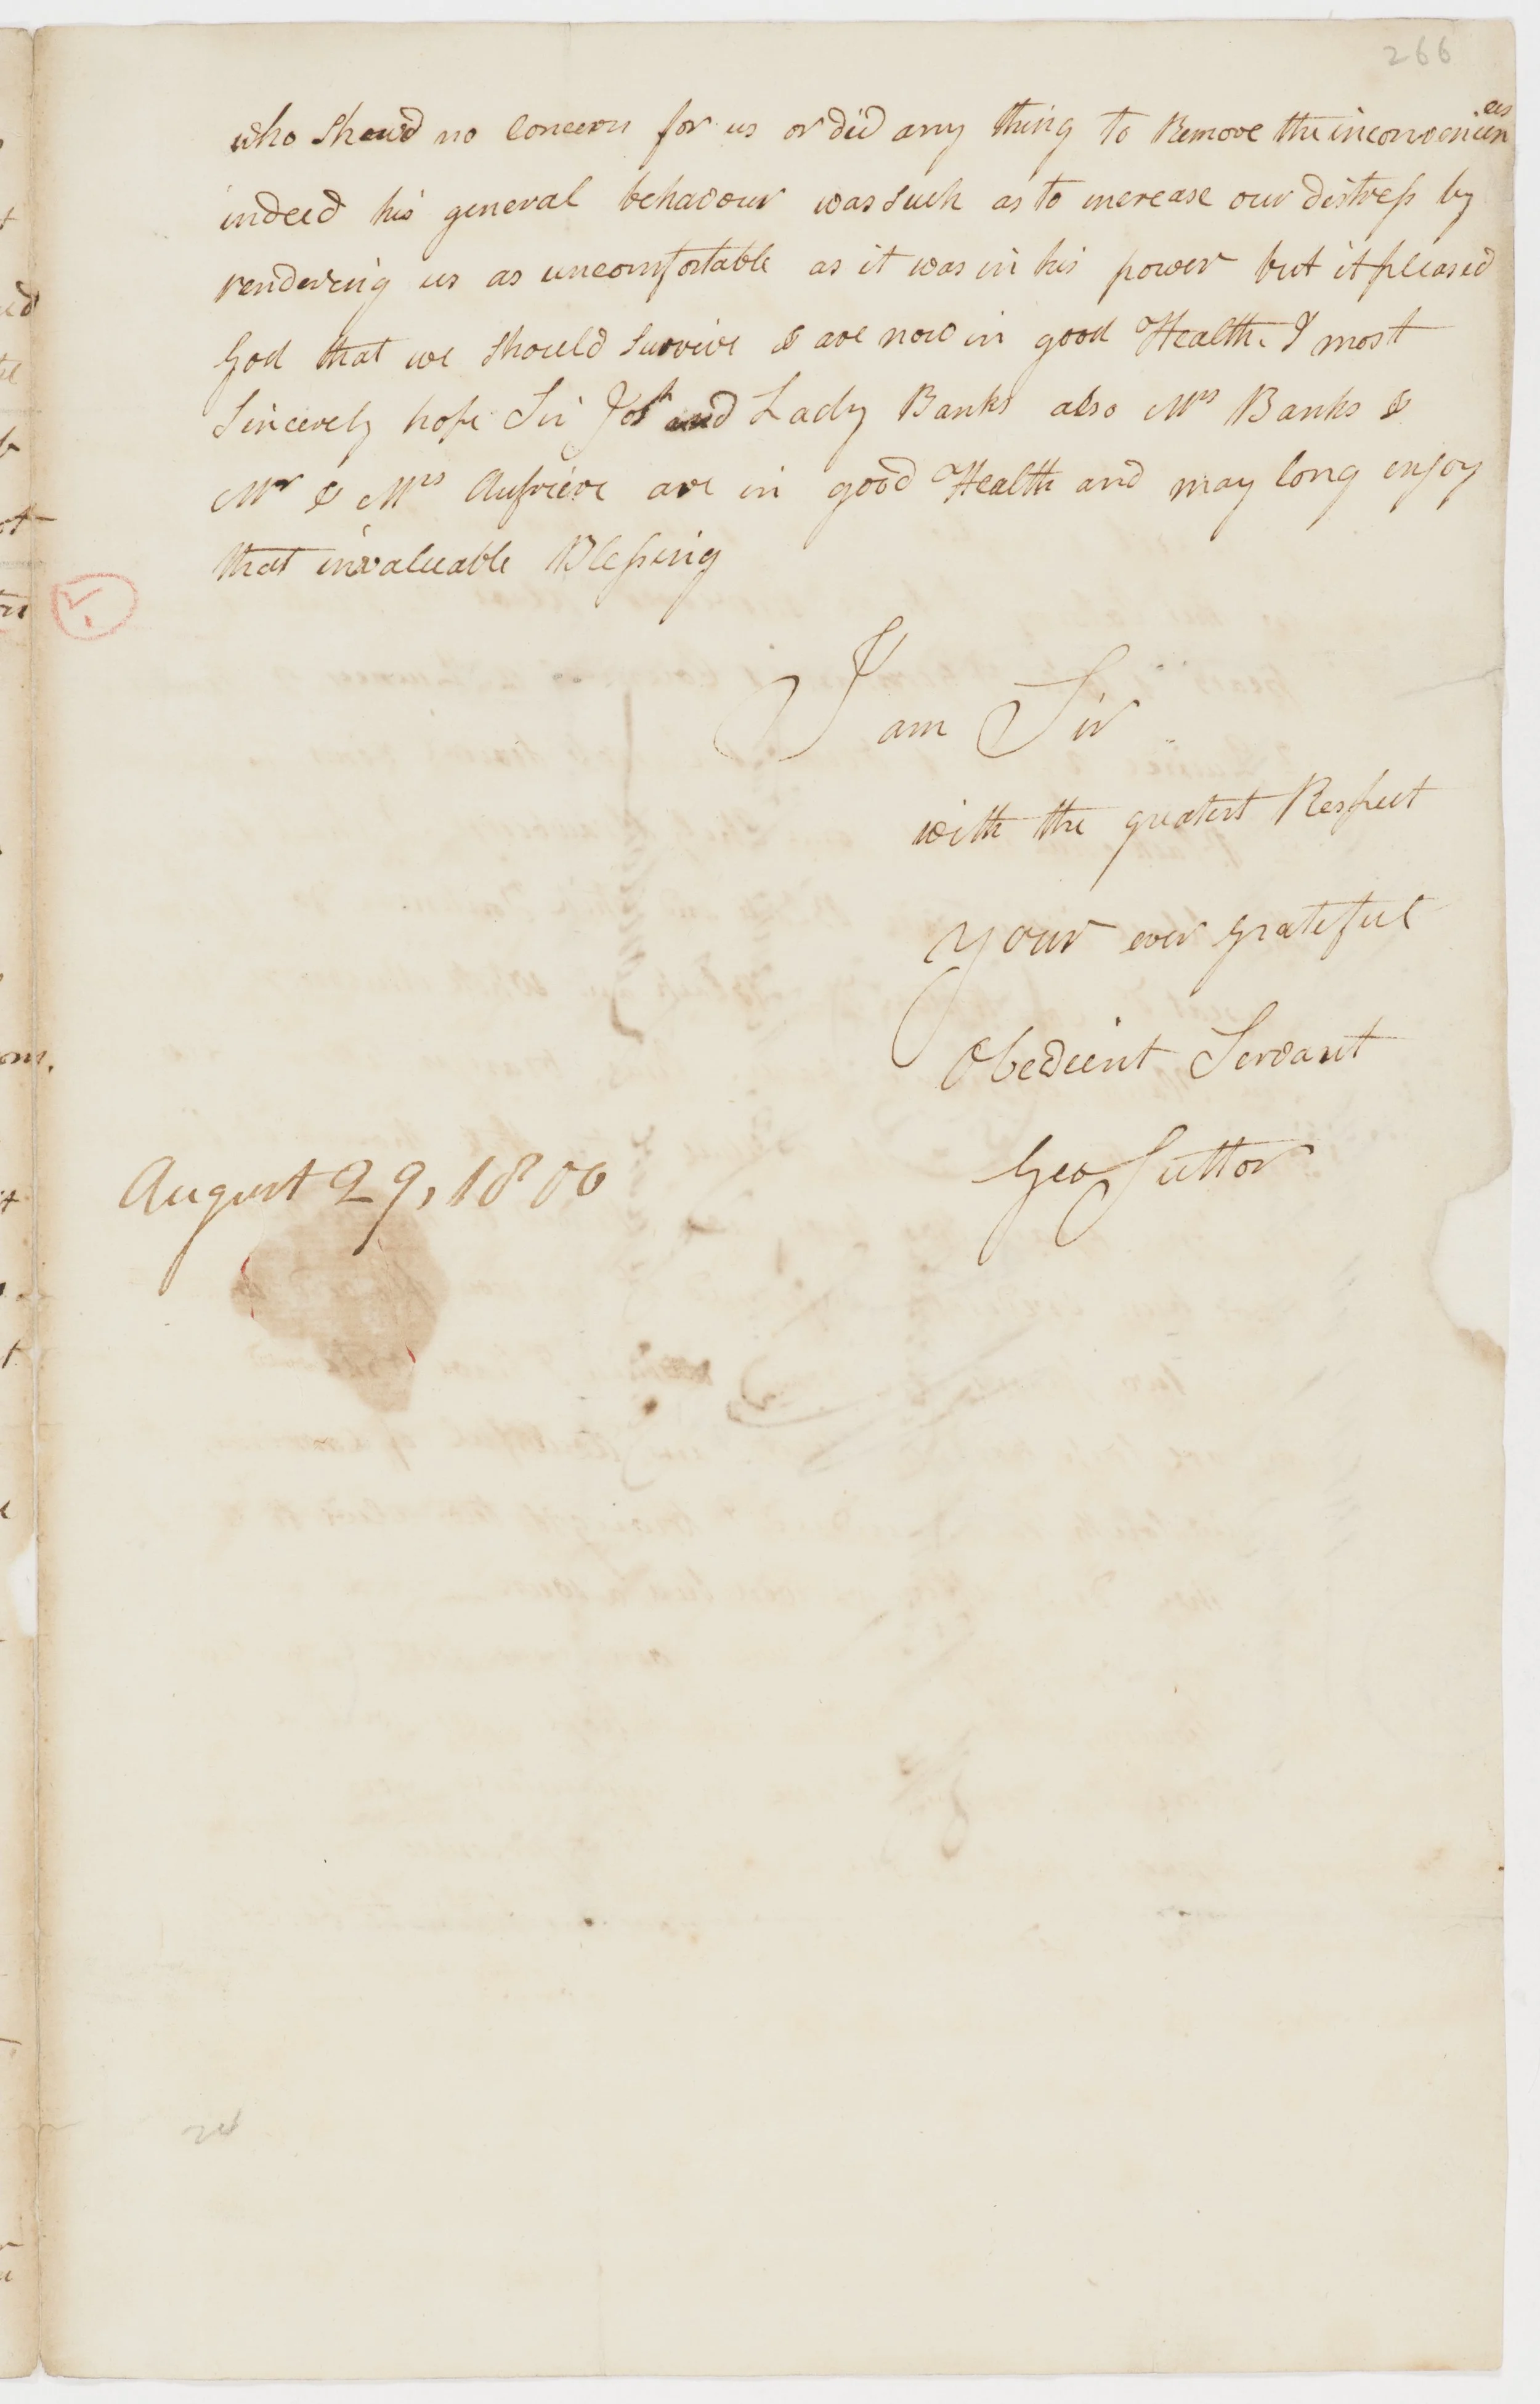 266
who Shewd no Concern for us or did any thing to Remove the inconveniences
indeed his general behavour was Such as to increase our distress by
rendering us as uncomfortable as it was in his power but it pleased
God that we should Survive & are now in good Health. I most
Sincerely hope Sir Josh and Lady Banks also Mrs Banks &
Mr & Mrs Aufriere are in good Health and may long enjoy
that invaluable Blessing
I am Sir
with the greatest Respect
your ever grateful
Obedient Servant
Geo Suttor
August 29, 1800